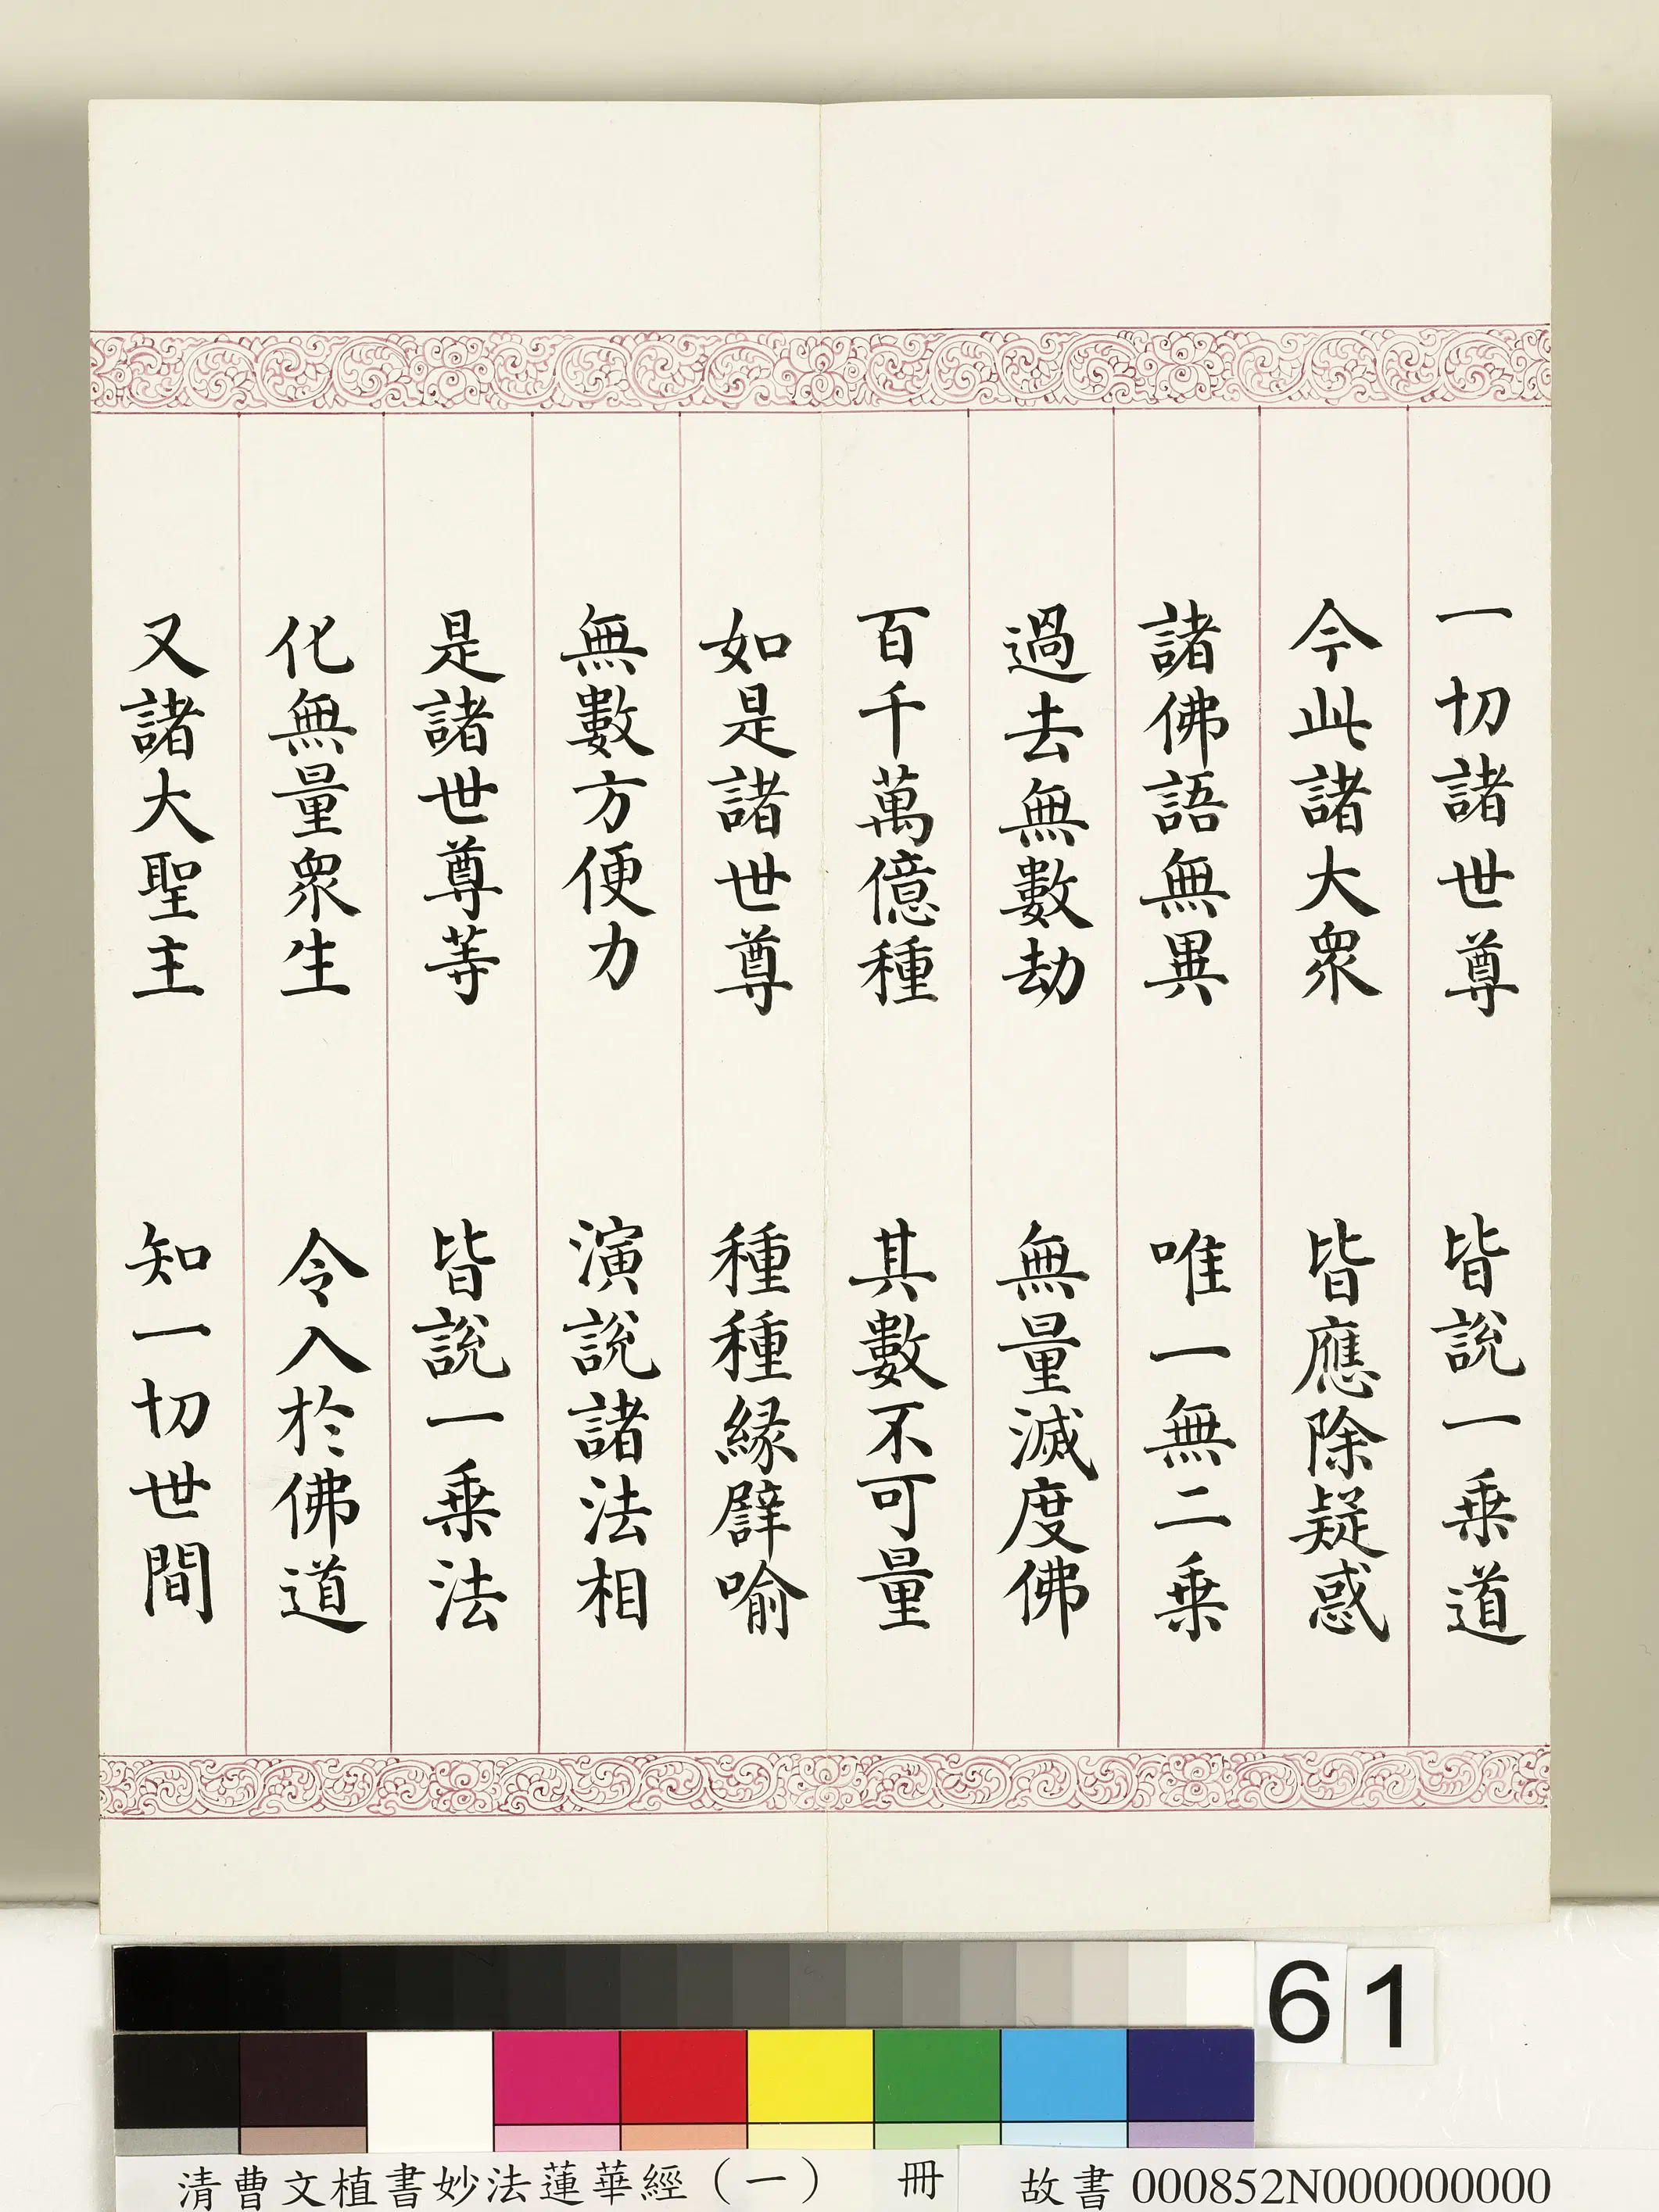 一切諸世尊　皆說一乘道
今此諸大衆　皆應除疑惑
諸佛語無異　唯一無二乘
過去無數劫　無量滅度佛
百千萬億種　其數不可量
如是諸世尊　種種緣譬喻
無數方便力　演說諸法相
是諸世尊等　皆說一乘法
化無量衆生　令入於佛道
又諸大聖主　知一切世間
61
清曹文植書妙法蓮華經（一）　冊　故書000852N000000000